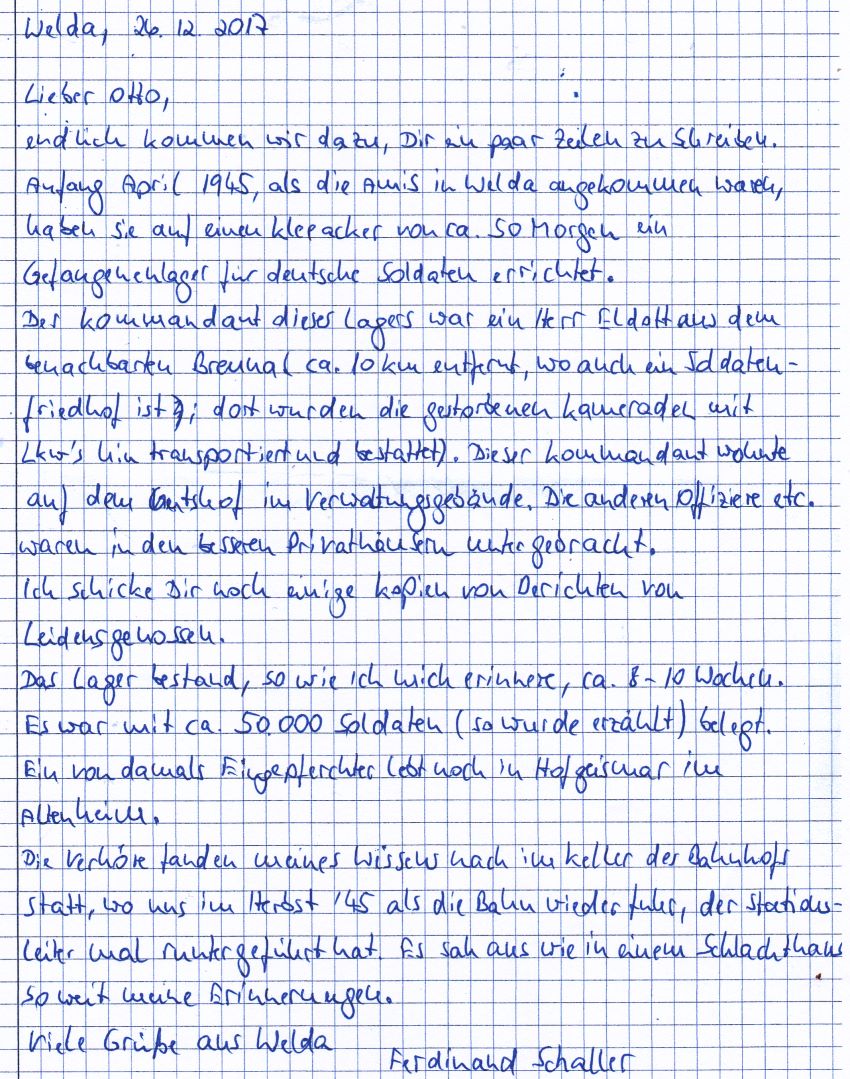 Welda, 26. 12. 2017
Lieber Otto,
endlich kommen wir dazu, Dir ein paar Zeilen zu schreiben.
Anfang April 1945, als die Amis in Welda angekommen waren,
haben sie auf einen Kleeacker von ca. 50 Morgen ein
Gefangenenlager für deutsche Soldaten errichtet.
Der Kommandant dieses Lagers war ein Herr Eldott aus dem
benachbarten Breuna ( ca. 10 km entfernt, wo auch ein Soldaten-
friedhof ist; dort wurden die gestorbenen Kameraden mit
Lkw's hin transportiert und bestattet). Dieser Kommandant wohnte
auf dem Gutshof im Verwaltungsgebäude. Die anderen Offiziere etc.
waren in den besseren Privathäusern untergebracht.
Ich schicke Dir noch einige Kopien von Berichten von
Leidensgenossen.
Das Lager bestand, so wie ich mich erinnere, ca. 8-10 Wochen.
Es war mit ca. 50.000 Soldaten (so wurde erzählt) belegt.
Ein von damals Eingepferchter lebt noch in Hofgeismar im
Altenheim.
Die Verhöre fanden meines Wissens nach im Keller der Bahnhofs
statt, wo uns im Herbst '45 als die Bahn wieder fuhr, der Stations-
leiter mal runtergeführt hat. Es sah aus wie in einem Schlachthaus
So weit meine Erinnerungen.
Viele Grüße aus Welda
Ferdinand Schaller